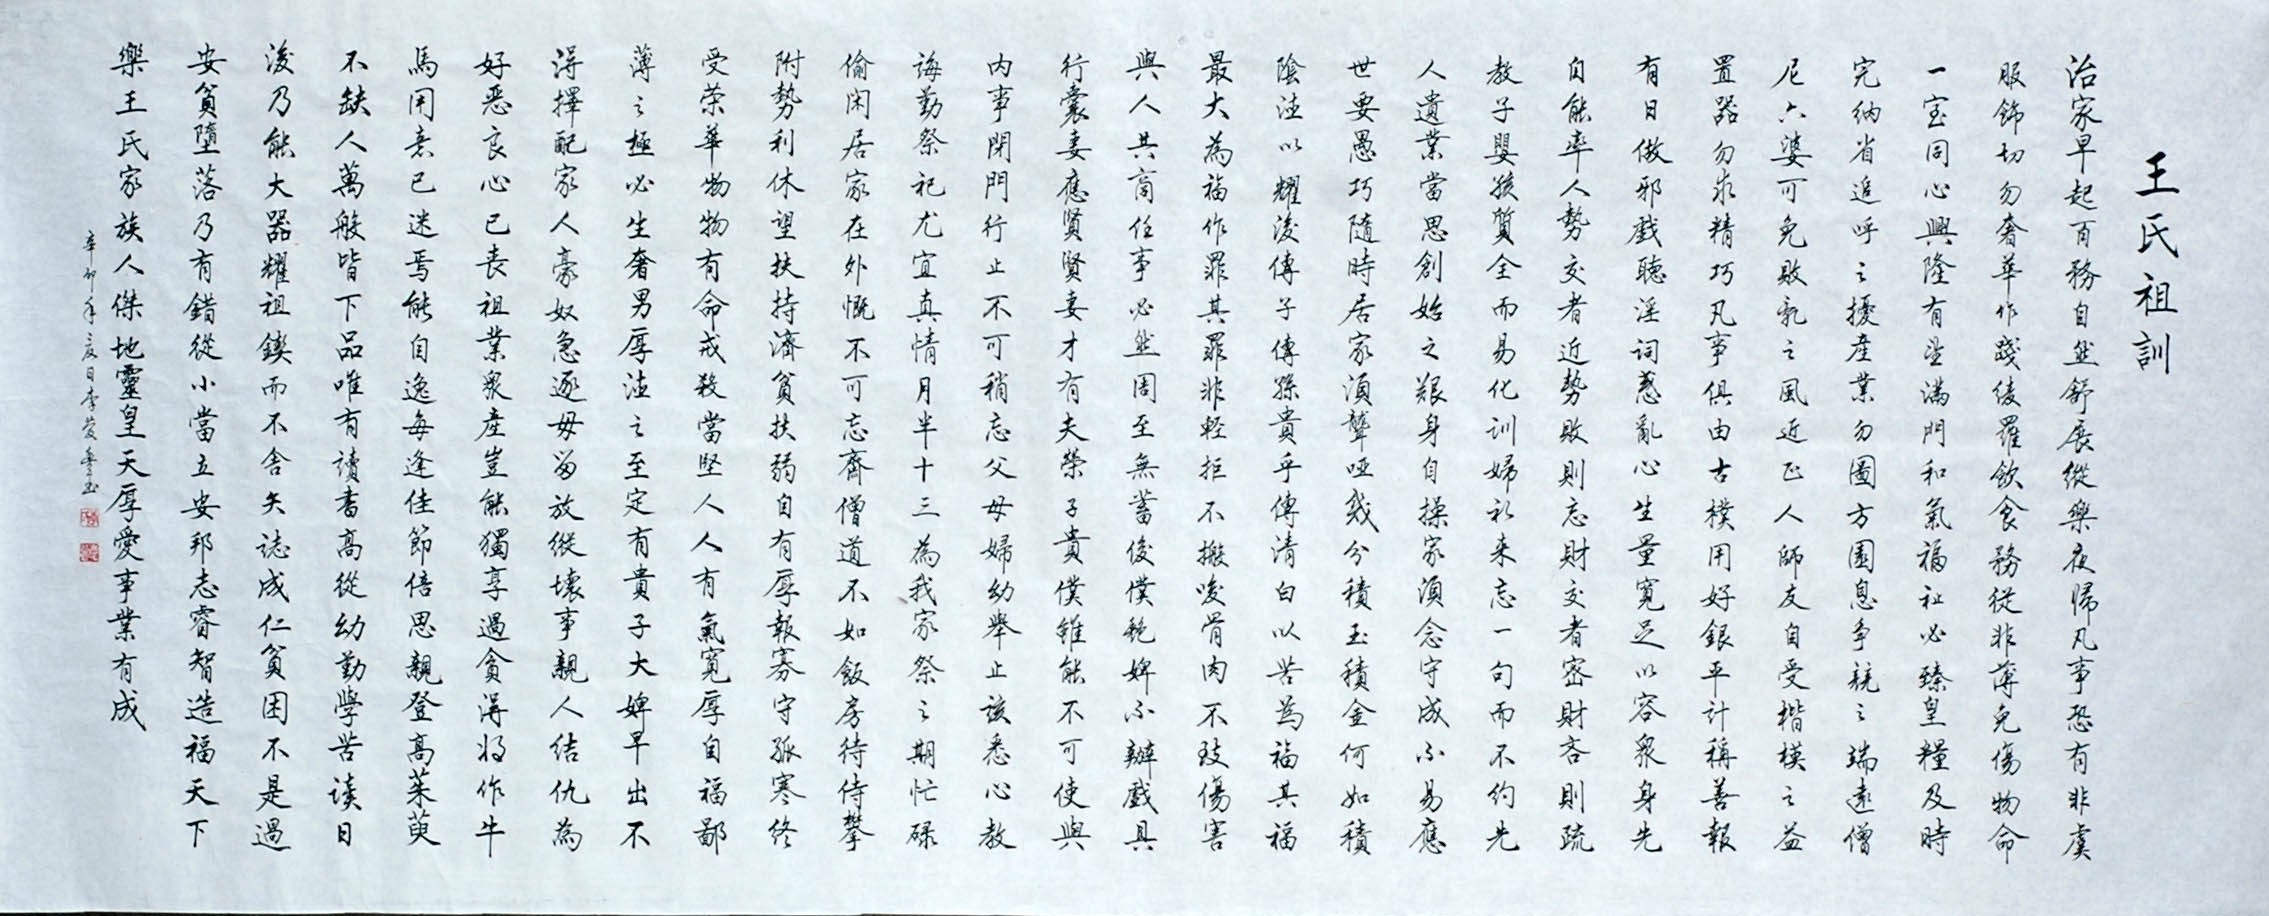 王氏祖訓
治家早起百務自然舒展縱樂夜歸凡事恐有非虞
服飾切勿奢華作踐綾羅飲食務從非薄免傷物命
一室同心興隆有望滿門和氣福祉必臻皇糧及時
完納省追呼之擾產業勿圖方圓息争競之端遠僧
尼六婆可免敗亂之風近正人師友自受楷模之益
置器勿求精巧凡事俱由古樸用好銀平計稱善報
有日做邪戲聽淫詞惹亂心生量寬足以容衆身先
自能率人勢交者近勢敗則忘財交者密財吝則疏
教子嬰孩質全而易化訓婦初来忘一句而不約先
人遺業當思創始之艱身自操家須念守成不易應
世要愚巧隨時居家須聾啞幾分積玉積金何如積
陰法以耀後傳子傳孫貴乎傳清白以苦為福其福
最大為福作罪其罪非輕拒不搬唆骨肉不致傷害
與人共商任事必然周至無蓄俊僕艷婢不辦戲具
行囊妻應賢賢妻才有夫榮子貴僕雖能不可使與
内事閉門行止不可稍忘父母婦幼舉止該悉心教
誨勤祭祀尤宜真情月半十三為我家祭之期忙碌
偷閑居家在外慨不可忘齋僧道不如飯房待侍攀
附勢利休望扶持濟貧扶弱自有厚報寡守孤寒終
受荣華物物有命戒殺當堅人人有氣寬厚自福鄙
薄之極必生奢男厚法之至定有貴子大婢早出不
得擇配家人豪奴急逐毋留放縱壞事親人結仇為
好惡良心已丧祖業衆產豈能獨享過貪得將作牛
馬用意已迷焉能自逸每逢佳節倍思親登高茱萸
不缺人萬般皆下品唯有讀書高從幼勤學苦读日
後乃能大器耀祖鍥而不舍矢誌成仁貧困不是過
安貧墮落乃有錯從小當立安邦志睿智造福天下
樂王氏家族人傑地靈皇天厚愛事業有成
辛卯年夏日李